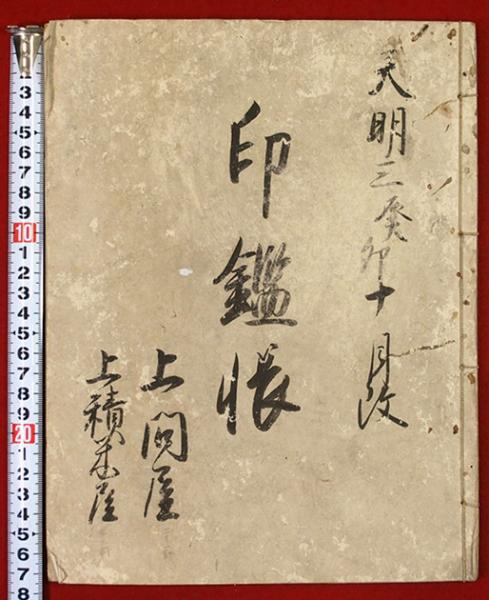 天明三癸卯十月改
印鑑帳
上問屋
上積問屋
3
4
5
6
7
8
9
10
1
2
3
4
5
6
7
8
9
20
1
2
3
4
5
6
7
8